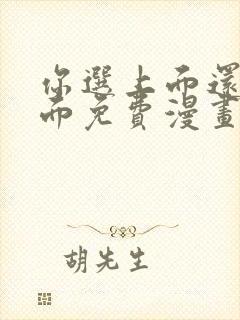 你選上而還
而免費漫畫
胡先生